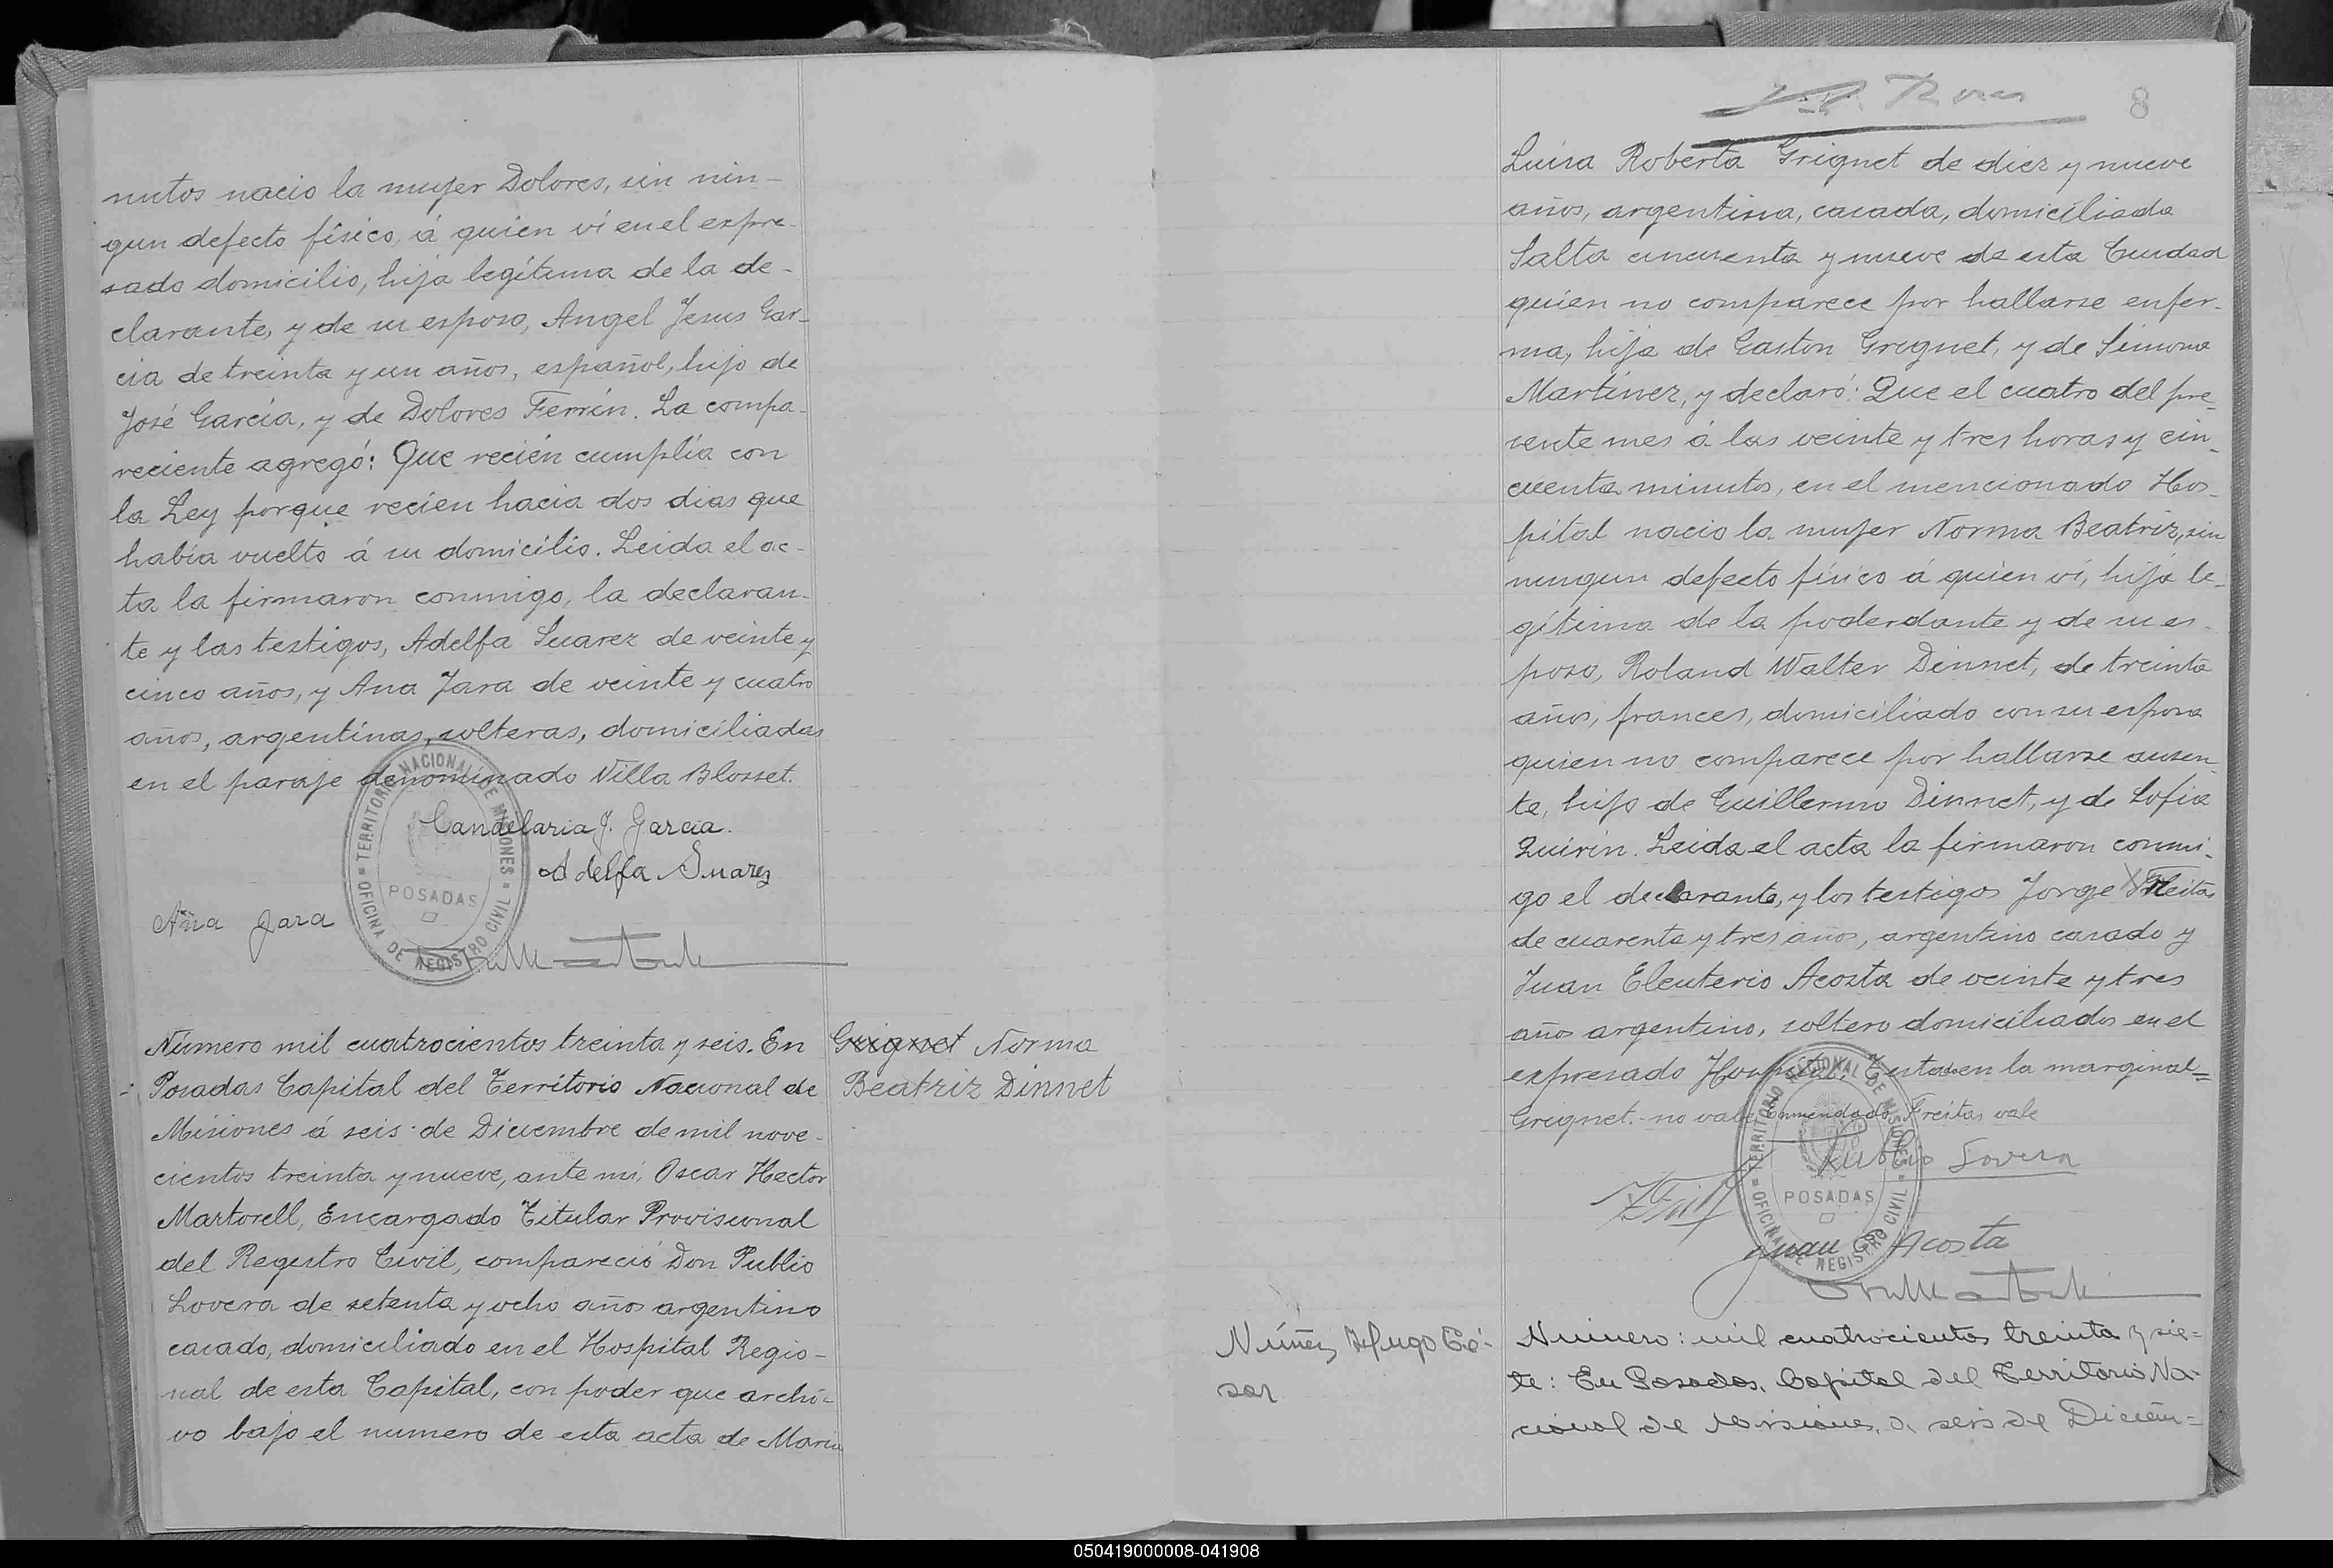 nutos nacio la mujer Dolores, sin nin-
gun defecto físico, á quien ví en el expre-
sado domicilio, hija legítima de la de-
clarante, y de su esposo, Angel Jesus Gar-
cia de treinta y un años, español, hijo de
José García, y de Dolores Ferrín. La compa-
reciente agregó: Que recién cumplía con
la Ley porque recien hacia dos dias que
había vuelto á su domicilio. Leida el ac-
ta la firmaron conmigo, la declaran-
te y las testigos, Adelfa Suarez de veinte y
cinco años, y Ana Jara de veinte y cuatro
años, argentinas, solteras, domiciliadas
en el paraje denominado Villa Blosset.
Candelaria J. García.
Adelfa Suarez
Ana Jara
TERRITORIO NACIONAL DE MISIONES
POSADAS
OFICINA DE REGISTRO CIVIL
Número mil cuatrocientos treinta y seis. En
Posadas Capital del Territorio Nacional de
Misiones á seis de Diciembre de mil nove-
cientos treinta y nueve, ante mí, Oscar Hector
Martorell, Encargado Titular Provisional
del Registro Civil, compareció Don Publio
Lovera de setenta y ocho años argentino
casado, domiciliado en el Hospital Regio-
nal de esta Capital, con poder que archi-
vo bajo el numero de esta acta de Maria
Grignet Norma
Beatriz Dinnet
8
Luisa Roberta Grignet de diez y nueve
años, argentina, casada, domiciliada
Salta cincuenta y nueve de esta Ciudad
quien no comparece por hallarse enfer-
ma, hija de Gaston Grignet, y de Simona
Martinez, y declaró: Que el cuatro del pre-
sente mes á las veinte y tres horas y cin-
cuenta minutos, en el mencionado Hos-
pital nacio la mujer Norma Beatriz, sin
ningun defecto físico á quien ví, hija le-
gítima de la poderdante y de su es-
poso, Roland Walter Dinnet, de treinta
años, frances, domiciliado con su esposa
quien no comparece por hallarse ausen-
te, hijo de Guillermo Dinnet, y de Sofia
Quirin. Leida el acta la firmaron conmi-
go el declarante, y los testigos Jorge Freitas
de cuarenta y tres años, argentino casado y
Juan Eleuterio Acosta de veinte y tres
años argentino, soltero domiciliados en el
expresado Hospital. Testado en la marginal=
Grignet.- no vale. Enmendado Freitas vale
Publio Lovera
TERRITORIO NACIONAL DE MISIONES
POSADAS
OFICINA DE REGISTRO CIVIL
Juan E Acosta
Núñez Hugo Cé-
sar
Numero: mil cuatrocientos treinta y sie=
te: En Posadas, Capital del Territorio Na-
cional de Misiones, a seis de Diciem=
050419000008-041908